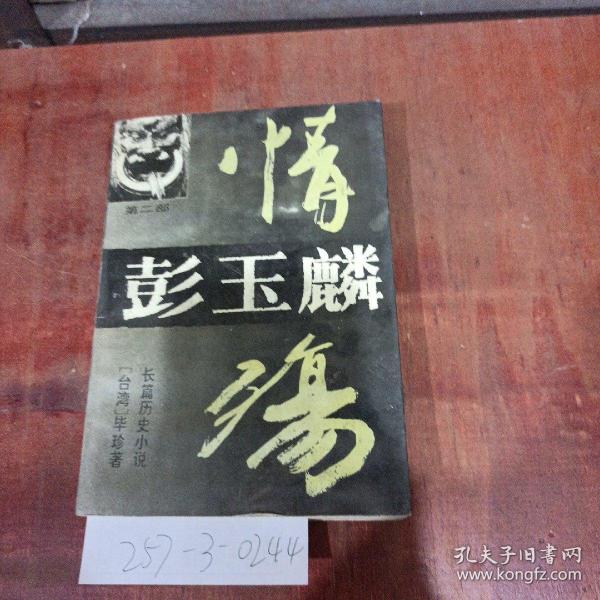 情
第二部
彭玉麟
殇
长篇历史小说
［台湾］毕珍著
257-3-0244
孔夫子旧书网
www.kongfz.com